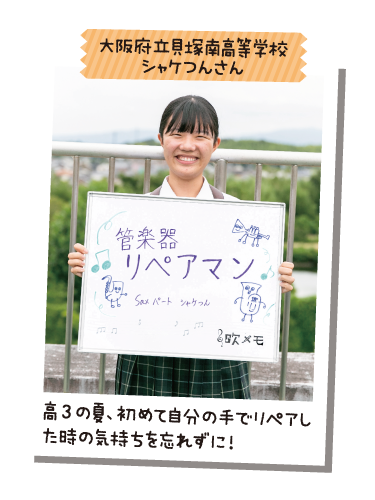 大阪府立貝塚南高等学校
シャケつんさん
管楽器
リペアマン
Saxパート シャケつん
吹メモ
高3の夏、初めて自分の手でリペアし
た時の気持ちを忘れずに!